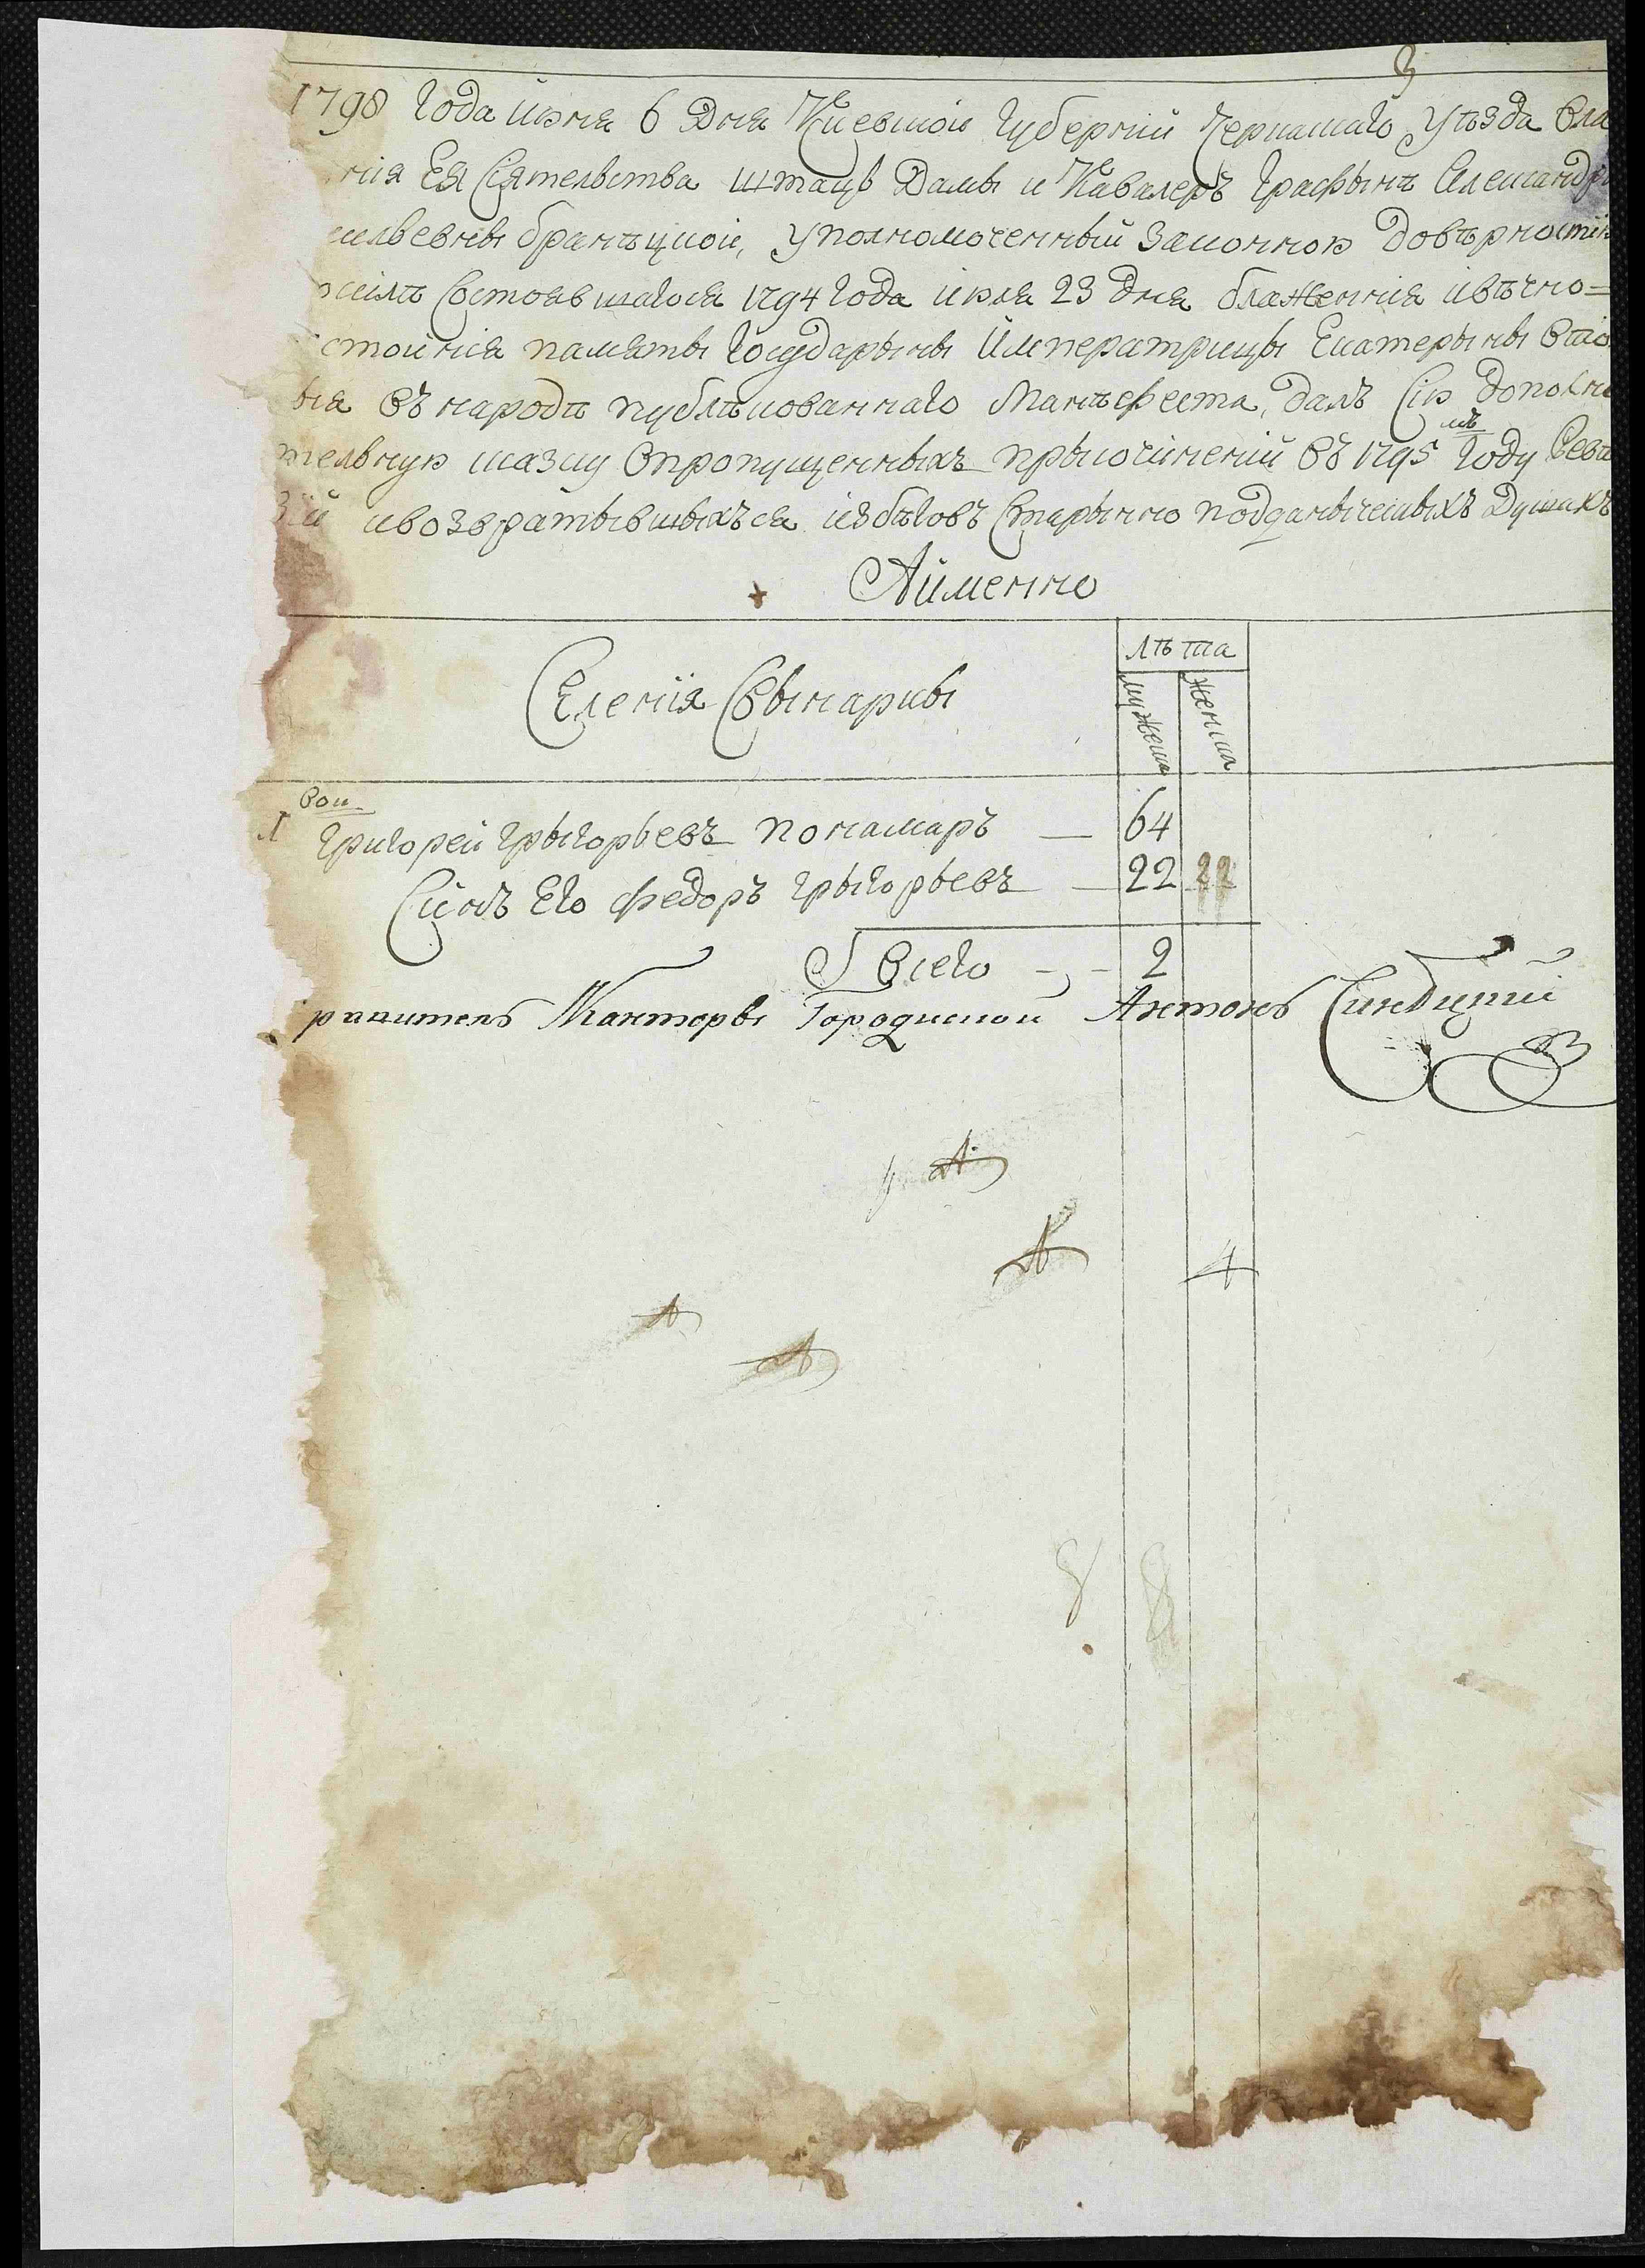 3
1798 Года июня 6 Дня Киевской Губернии Черкаскаго Уѣзда Вла
ния Ея Сіятельства штацъ Дамы и Кавалеръ Графынѣ Александры
сильевны бранѣцкой, уполномоченный Законною довѣрностию
силѣ Состоявшагося 1794 Года июля 23 дня блаженния ивѣчно=
стойния памяты Государыны Императрицы Екатерыны Вто
ыя въ народѣ публѣкованнаго Манѣфеста, далъ Сію дополни
тельную сказку Опропущенныхъ прысочіненіи въ 1795 мъ Году Реви
зіи ивозвратывшыхъся избѣговъ Старынно подданыческыхъ Душахъ
Аименно
Селенія Свынаркы
лѣта
мужеска
женска
1 Григорей Грыгорьевъ Понамаръ — 64
Синъ Его Федоръ Грыгорьевъ — 22
Всего — 2
Канторы Городиской Антонъ